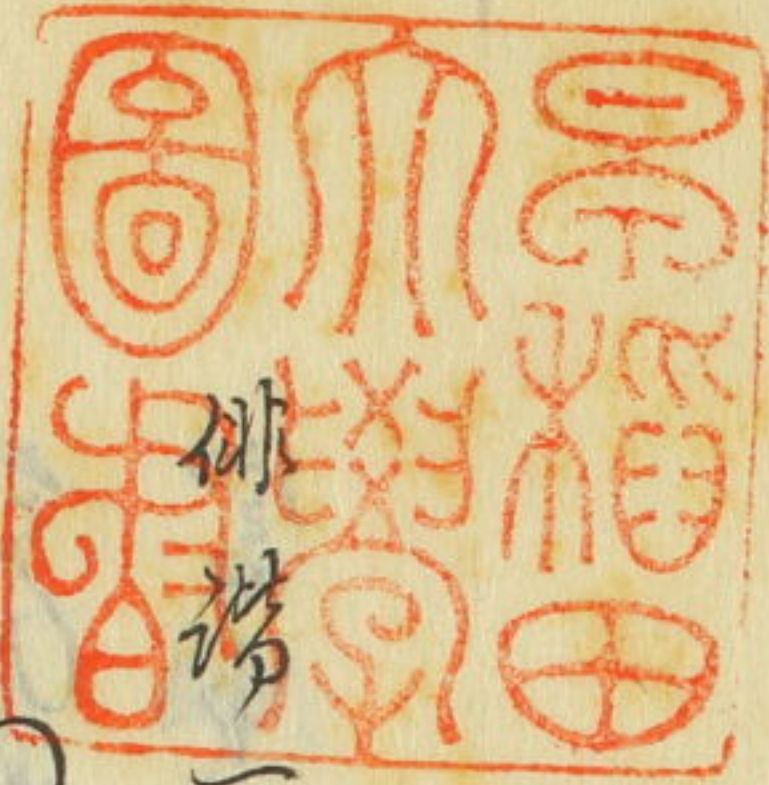 早稲田
大學
圖書
俳諧一